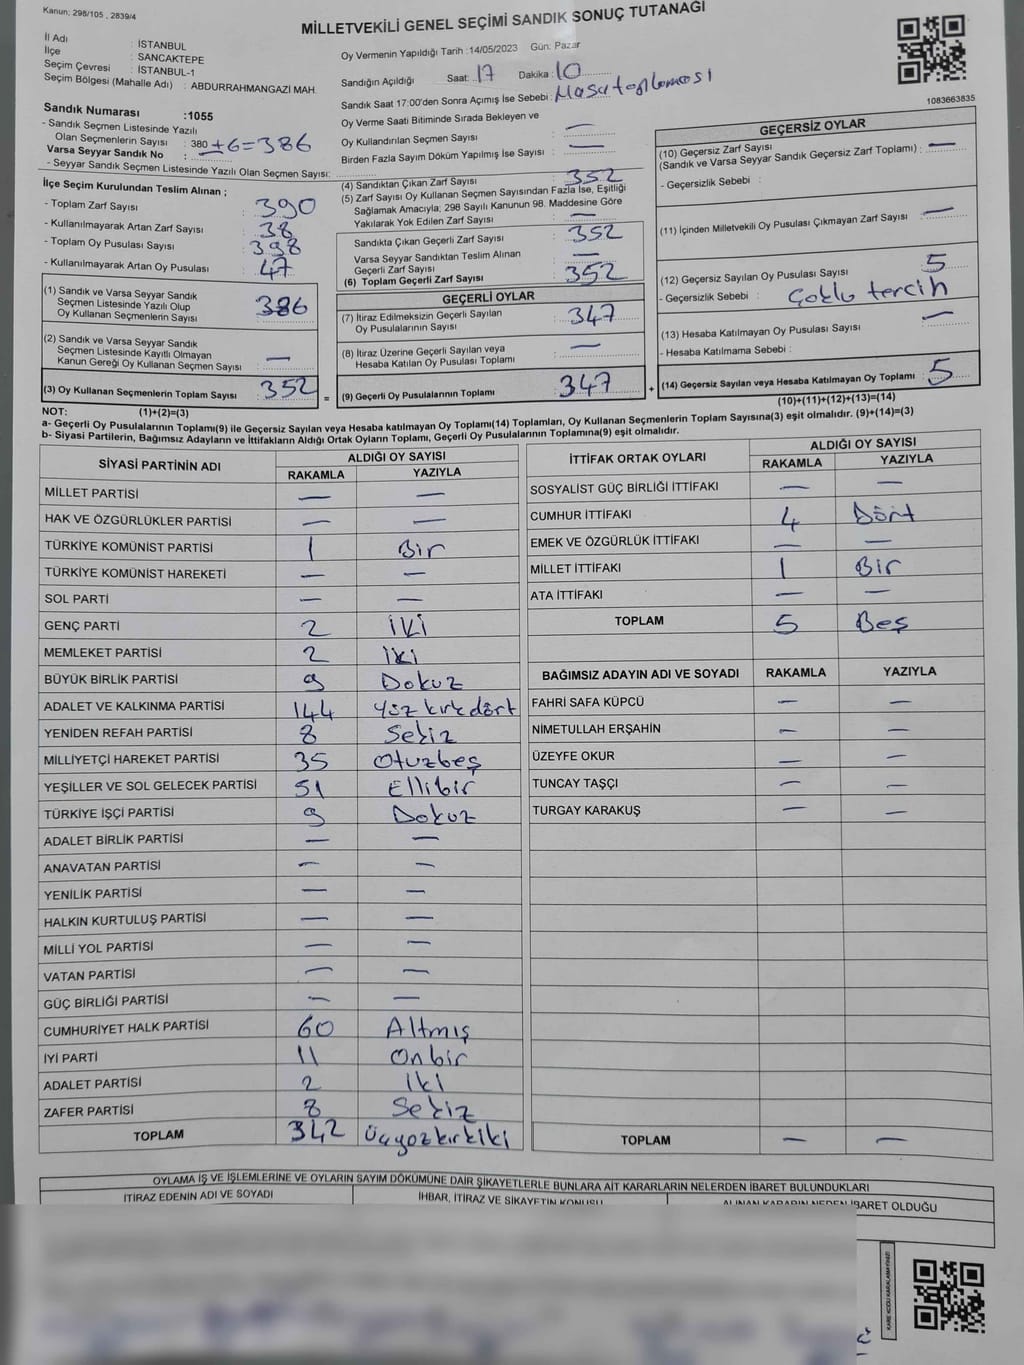 Kanun: 298/105 , 2839/4
MİLLETVEKİLİ GENEL SEÇİMİ SANDIK SONUÇ TUTANAĞI
İl Adı : İSTANBUL
İlçe : SANCAKTEPE
Seçim Çevresi : İSTANBUL-1
Seçim Bölgesi (Mahalle Adı) : ABDURRAHMANGAZİ MAH.
Oy Vermenin Yapıldığı Tarih :14/05/2023 Gün: Pazar
Sandığın Açıldığı Saat: 17 Dakika : 10
Sandık Saat 17:00'den Sonra Açımış İse Sebebi : Masa toplaması
1083663835
Sandık Numarası :1055
- Sandık Seçmen Listesinde Yazılı
Olan Seçmenlerin Sayısı : 380 +6=386
Varsa Seyyar Sandık No :
- Seyyar Sandık Seçmen Listesinde Yazılı Olan Seçmen Sayısı:
Oy Verme Saati Bitiminde Sırada Bekleyen ve
Oy Kullandırılan Seçmen Sayısı : —
Birden Fazla Sayım Döküm Yapılmış İse Sayısı : —
İlçe Seçim Kurulundan Teslim Alınan ;
- Toplam Zarf Sayısı : 390
- Kullanılmayarak Artan Zarf Sayısı : 38
- Toplam Oy Pusulası Sayısı : 398
- Kullanılmayarak Artan Oy Pusulası : 47
(1) Sandık ve Varsa Seyyar Sandık
Seçmen Listesinde Yazılı Olup
Oy Kullanan Seçmenlerin Sayısı : 386
(2) Sandık ve Varsa Seyyar Sandık
Seçmen Listesinde Kayıtlı Olmayan
Kanun Gereği Oy Kullanan Seçmen Sayısı : —
(3) Oy Kullanan Seçmenlerin Toplam Sayısı : 352
(4) Sandıktan Çıkan Zarf Sayısı : 352
(5) Zarf Sayısı Oy Kullanan Seçmen Sayısından Fazla İse, Eşitliği
Sağlamak Amacıyla; 298 Sayılı Kanunun 98. Maddesine Göre
Yakılarak Yok Edilen Zarf Sayısı : —
Sandıkta Çıkan Geçerli Zarf Sayısı : 352
Varsa Seyyar Sandıktan Teslim Alınan
Geçerli Zarf Sayısı : —
(6) Toplam Geçerli Zarf Sayısı : 352
GEÇERLİ OYLAR
(7) İtiraz Edilmeksizin Geçerli Sayılan
Oy Pusulalarının Sayısı : 347
(8) İtiraz Üzerine Geçerli Sayılan veya
Hesaba Katılan Oy Pusulası Toplamı : —
= (9) Geçerli Oy Pusulalarının Toplamı : 347
GEÇERSİZ OYLAR
(10) Geçersiz Zarf Sayısı : —
(Sandık ve Varsa Seyyar Sandık Geçersiz Zarf Toplamı)
- Geçersizlik Sebebi :
(11) İçinden Milletvekili Oy Pusulası Çıkmayan Zarf Sayısı : —
(12) Geçersiz Sayılan Oy Pusulası Sayısı : 5
- Geçersizlik Sebebi : Çoklu tercih
(13) Hesaba Katılmayan Oy Pusulası Sayısı : —
- Hesaba Katılmama Sebebi :
+ (14) Geçersiz Sayılan veya Hesaba Katılmayan Oy Toplamı : 5
NOT: (1)+(2)=(3) (10)+(11)+(12)+(13)=(14)
a- Geçerli Oy Pusulalarının Toplamı(9) ile Geçersiz Sayılan veya Hesaba katılmayan Oy Toplamı(14) Toplamları, Oy Kullanan Seçmenlerin Toplam Sayısına(3) eşit olmalıdır. (9)+(14)=(3)
b- Siyasi Partilerin, Bağımsız Adayların ve İttifakların Aldığı Ortak Oyların Toplamı, Geçerli Oy Pusulalarının Toplamına(9) eşit olmalıdır.
SİYASİ PARTİNİN ADI ALDIĞI OY SAYISI
RAKAMLA YAZIYLA
MİLLET PARTİSİ — —
HAK VE ÖZGÜRLÜKLER PARTİSİ — —
TÜRKİYE KOMÜNİST PARTİSİ 1 Bir
TÜRKİYE KOMÜNİST HAREKETİ — —
SOL PARTİ — —
GENÇ PARTİ 2 İki
MEMLEKET PARTİSİ 2 iki
BÜYÜK BİRLİK PARTİSİ 9 Dokuz
ADALET VE KALKINMA PARTİSİ 144 Yüz kırkdört
YENİDEN REFAH PARTİSİ 8 Sekiz
MİLLİYETÇİ HAREKET PARTİSİ 35 Otuzbeş
YEŞİLLER VE SOL GELECEK PARTİSİ 51 Ellibir
TÜRKİYE İŞÇİ PARTİSİ 9 Dokuz
ADALET BİRLİK PARTİSİ — —
ANAVATAN PARTİSİ — —
YENİLİK PARTİSİ — —
HALKIN KURTULUŞ PARTİSİ — —
MİLLİ YOL PARTİSİ — —
VATAN PARTİSİ — —
GÜÇ BİRLİĞİ PARTİSİ — —
CUMHURİYET HALK PARTİSİ 60 Altmış
İYİ PARTİ 11 Onbir
ADALET PARTİSİ 2 İki
ZAFER PARTİSİ 8 Sekiz
TOPLAM 342 Üçyüzkırkiki
İTTİFAK ORTAK OYLARI ALDIĞI OY SAYISI
RAKAMLA YAZIYLA
SOSYALİST GÜÇ BİRLİĞİ İTTİFAKI — —
CUMHUR İTTİFAKI 4 Dört
EMEK VE ÖZGÜRLÜK İTTİFAKI — —
MİLLET İTTİFAKI 1 Bir
ATA İTTİFAKI — —
TOPLAM 5 Beş
BAĞIMSIZ ADAYIN ADI VE SOYADI RAKAMLA YAZIYLA
FAHRİ SAFA KÜPCÜ — —
NİMETULLAH ERŞAHİN — —
ÜZEYFE OKUR — —
TUNCAY TAŞÇI — —
TURGAY KARAKUŞ — —
TOPLAM — —
OYLAMA İŞ VE İŞLEMLERİNE VE OYLARIN SAYIM DÖKÜMÜNE DAİR ŞİKAYETLERLE BUNLARA AİT KARARLARIN NELERDEN İBARET BULUNDUKLARI
İTİRAZ EDENİN ADI VE SOYADI İHBAR, İTİRAZ VE ŞİKAYETİN KONUSU ALINAN KARARIN NEDEN İBARET OLDUĞU
KARE KODU KARALAMAYINIZ!